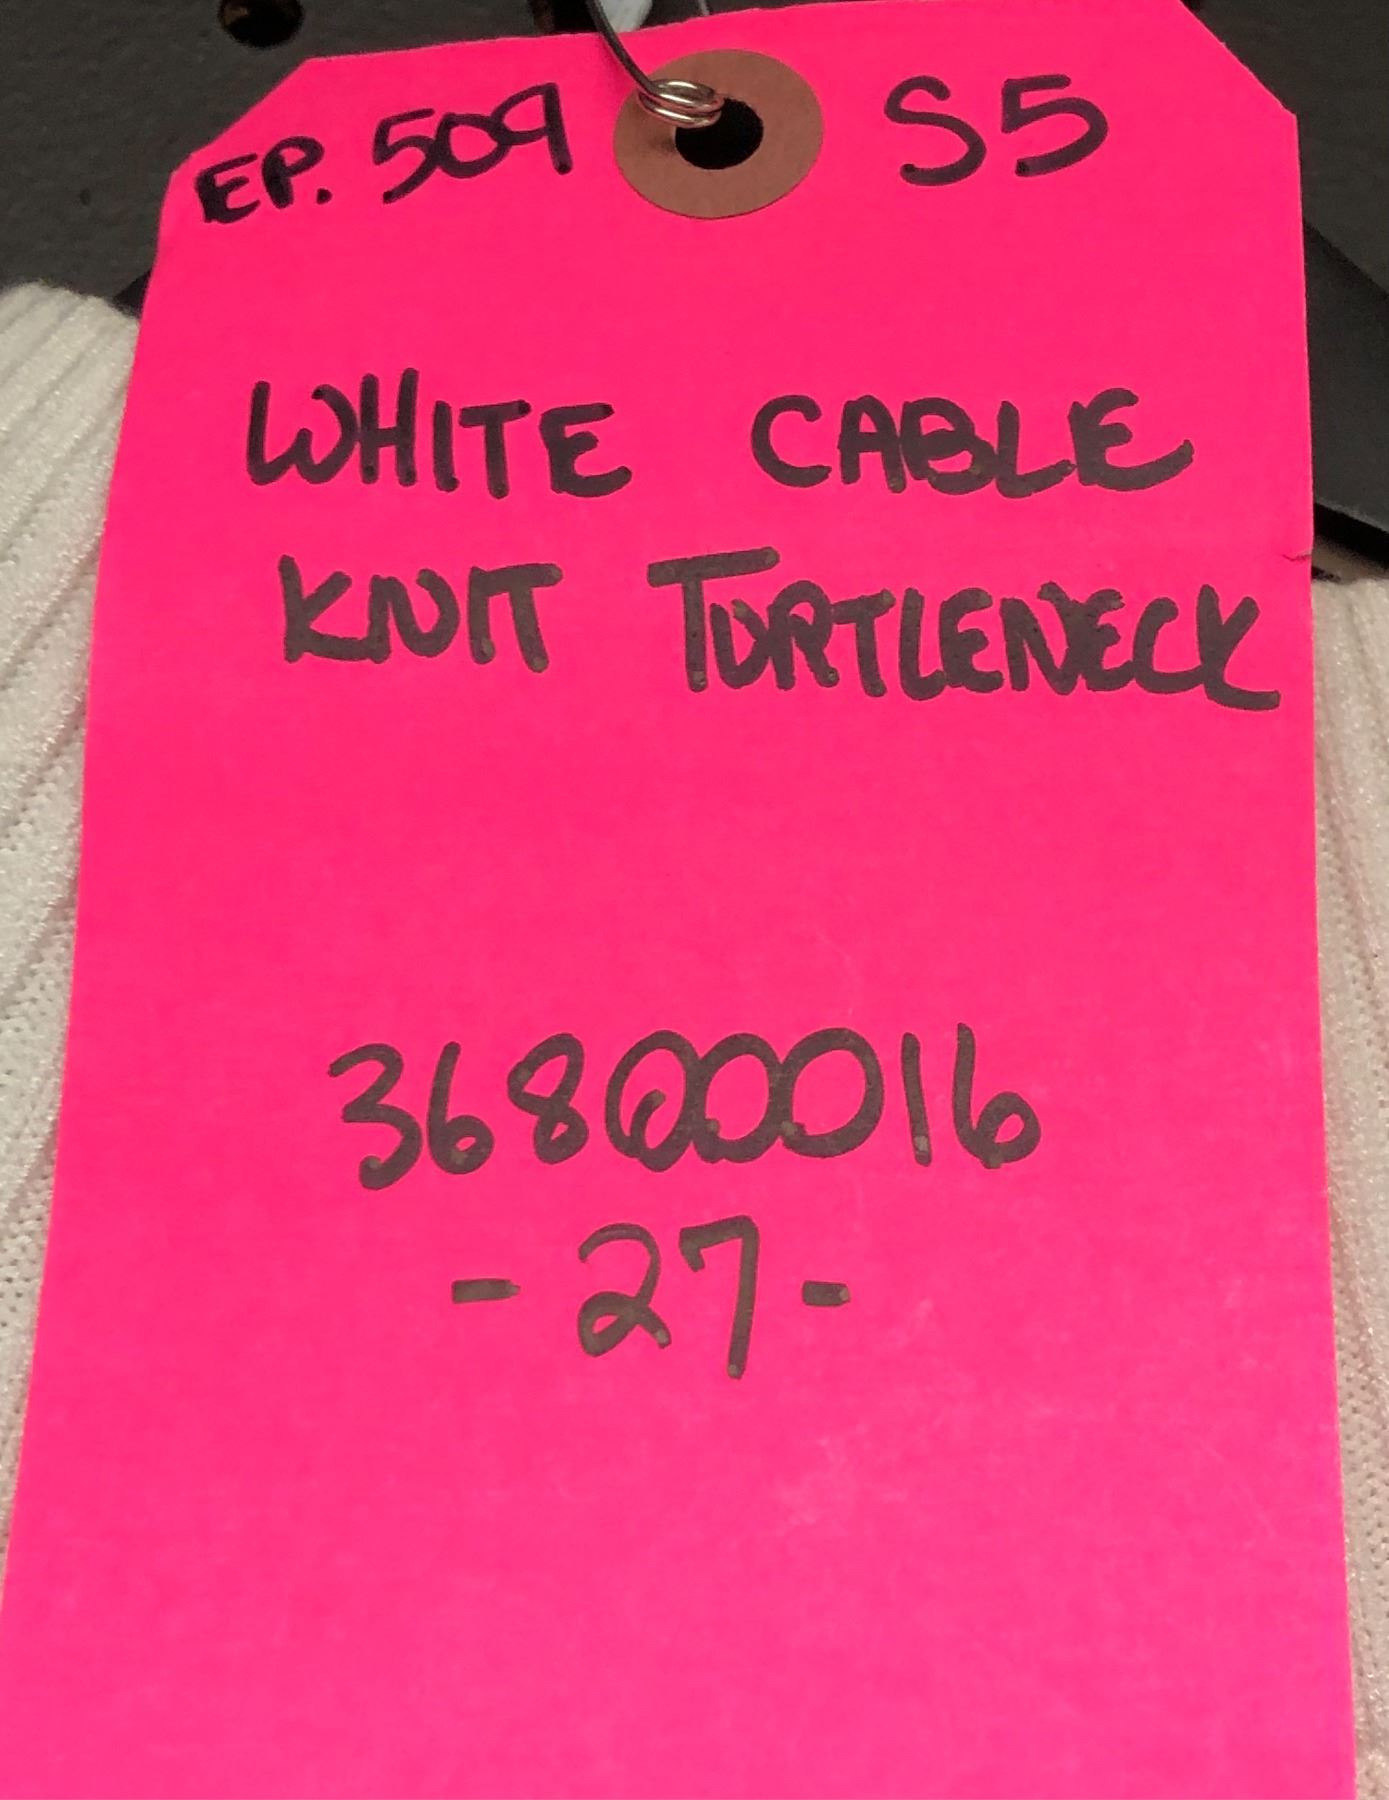 EP. 509 S5
WHITE CABLE
KNIT TURTLENECK
36800016
- 27 -